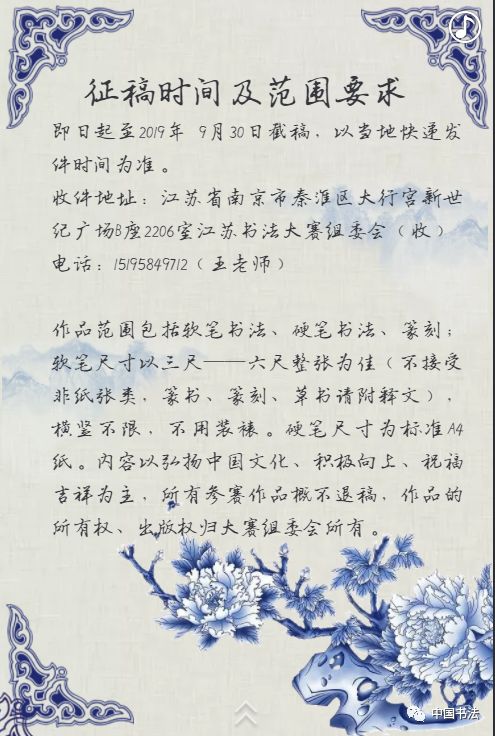 征稿时间及范围要求
即日起至2019年 9月30日截稿，以当地快递发
件时间为准。
收件地址：江苏省南京市秦淮区大行宫新世
纪广场B座2206室江苏书法大赛组委会（收）
电话：15195849712（王老师）
作品范围包括软笔书法、硬笔书法、篆刻；
软笔尺寸以三尺——六尺整张为佳（不接受
非纸张类，篆书、篆刻、草书请附释文），
横竖不限，不用装裱。硬笔尺寸为标准A4
纸。内容以弘扬中国文化、积极向上、祝福
吉祥为主，所有参赛作品概不退稿，作品的
所有权、出版权归大赛组委会所有。
中国书法